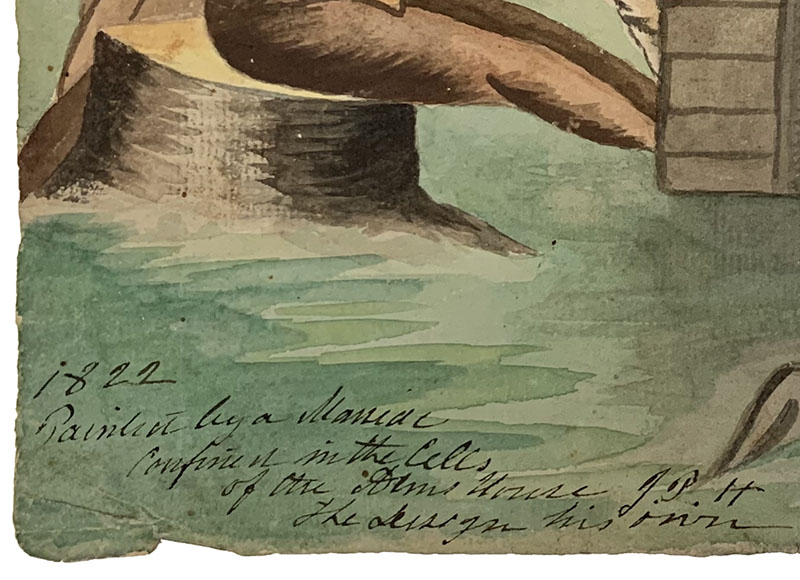 1822
Painted by a Maniac
Confined in the Cells
of the Alms House J. P. H
The Design his own